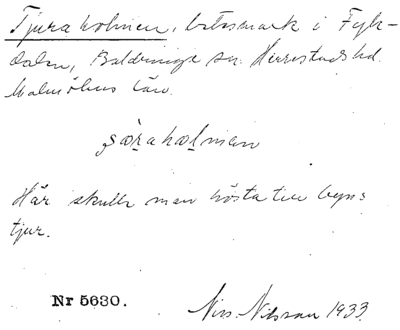 Tjuraholmen, betesmark i Fyle-
dalen, Baldringe sn. Herrestads hd.
Malmöhus län.
Här skulle man hösta till byns
tjur.
Nr 5630.
Nils Nilsson 1933.